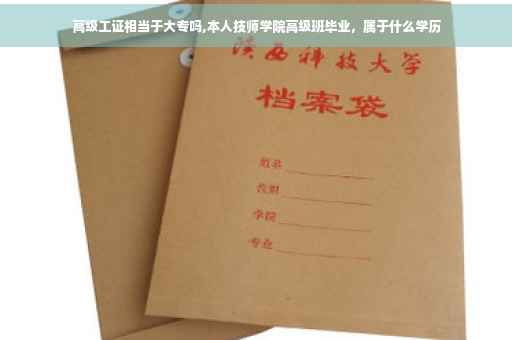 高级工证相当于大专吗,本人技师学院高级班毕业，属于什么学历
陕西科技大学
档案袋
姓名
学院
专业